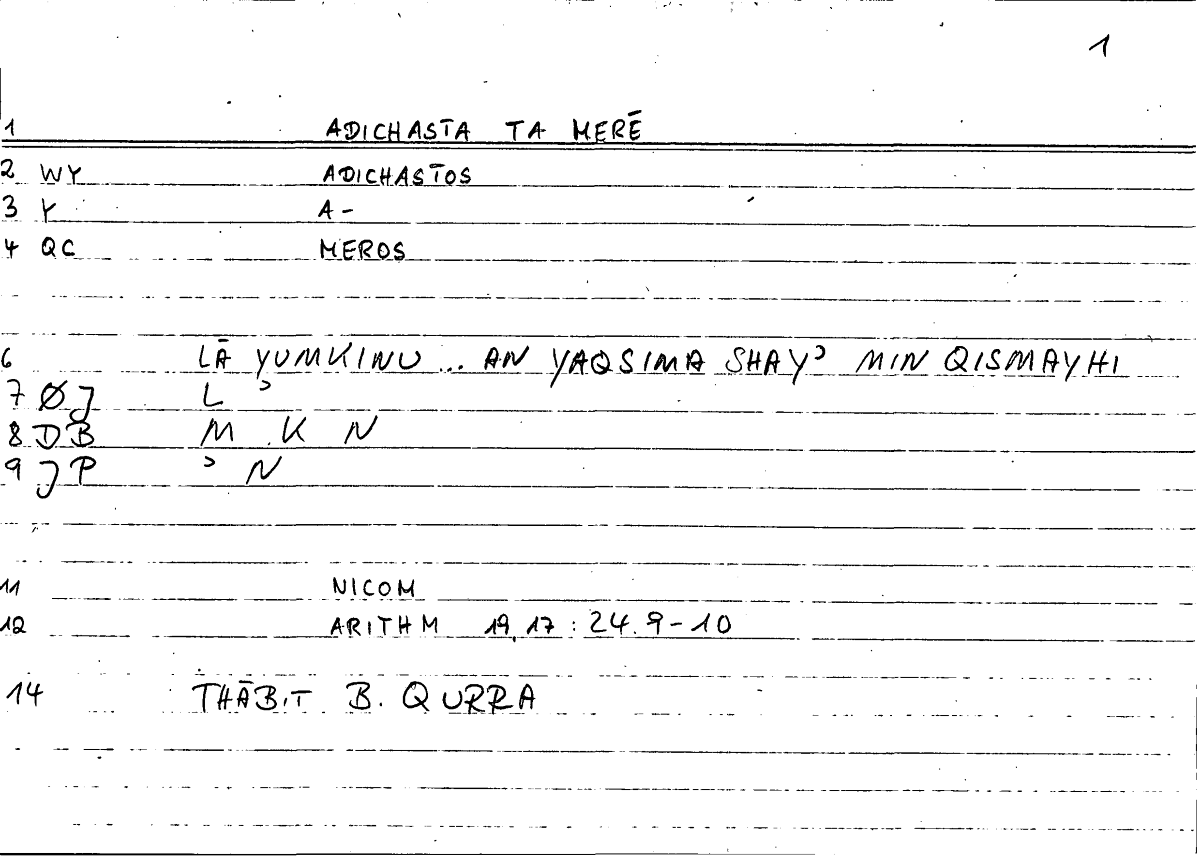 1
1 ADICHASTA TA MERĒ
2 WY ADICHASTOS
3 Y A-
4 QC MEROS
6 LĀ YUMKINU ... AN YAQSIMA SHAYʾ MIN QISMAYHI
7 ØJ L ʾ
8 DB M K N
9 JP ʾ N
11 NICOM
12 ARITHM 19,17 : 24.9-10
14 THĀBIT B. QURRA